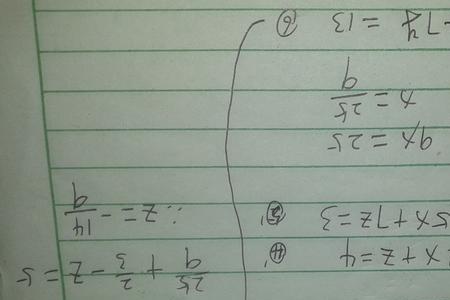 2x + z = 4 ④'
5x + 7z = 3 ⑤'
9x = 25
x = 25/9
-7y = 13 ⑥
25/9 + 2/3 - z = 5
∴ z = - 14/9